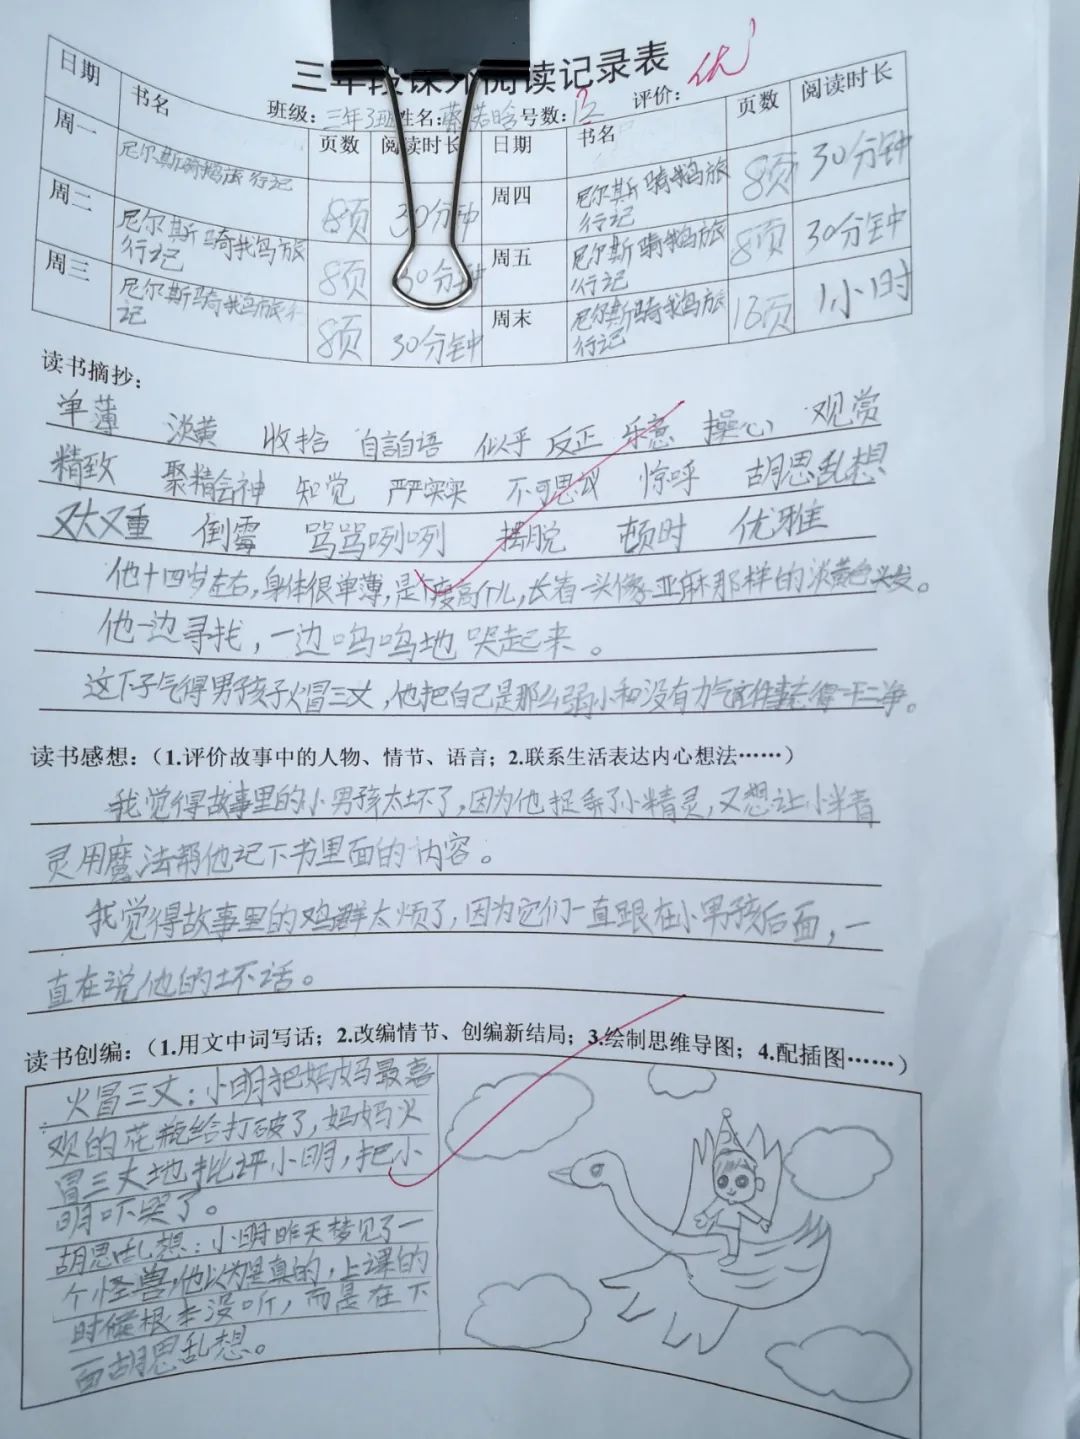 三年段课外阅读记录表
班级：三年3班 姓名：蔡若晗 号数：12 评价：优
日期 书名 页数 阅读时长 日期 书名 页数 阅读时长
周一 尼尔斯骑鹅旅行记 8页 30分钟 周四 尼尔斯骑鹅旅行记 8页 30分钟
周二 尼尔斯骑鹅旅行记 8页 30分钟 周五 尼尔斯骑鹅旅行记 8页 30分钟
周三 尼尔斯骑鹅旅行记 8页 30分钟 周末 尼尔斯骑鹅旅行记 13页 1小时
读书摘抄：
单薄 淡黄 收拾 自言自语 似乎 反正 乐意 操心 观赏
精致 聚精会神 知觉 严严实实 不可思议 惊呼 胡思乱想
又大又重 倒霉 骂骂咧咧 摆脱 顿时 优雅
他十四岁左右，身体很单薄，是个瘦高个儿，长着一头像亚麻那样的淡黄色头发。
他一边寻找，一边呜呜地哭起来。
这下子气得男孩子火冒三丈，他把自己是那么弱小和没有力气这件事忘得一干二净。
读书感想：（1.评价故事中的人物、情节、语言；2.联系生活表达内心想法……）
我觉得故事里的小男孩太坏了，因为他捉弄了小精灵，又想让小精
灵用魔法帮他记下书里面的内容。
我觉得故事里的鸡群太烦了，因为它们一直跟在小男孩后面，一
直在说他的坏话。
读书创编：（1.用文中词写话；2.改编情节、创编新结局；3.绘制思维导图；4.配插图……）
火冒三丈：小明把妈妈最喜
欢的花瓶给打破了，妈妈火
冒三丈地批评小明，把小
明吓哭了。
胡思乱想：小明昨天梦见了一
个怪兽，他以为是真的，上课的
时候根本没听，而是在下
面胡思乱想。